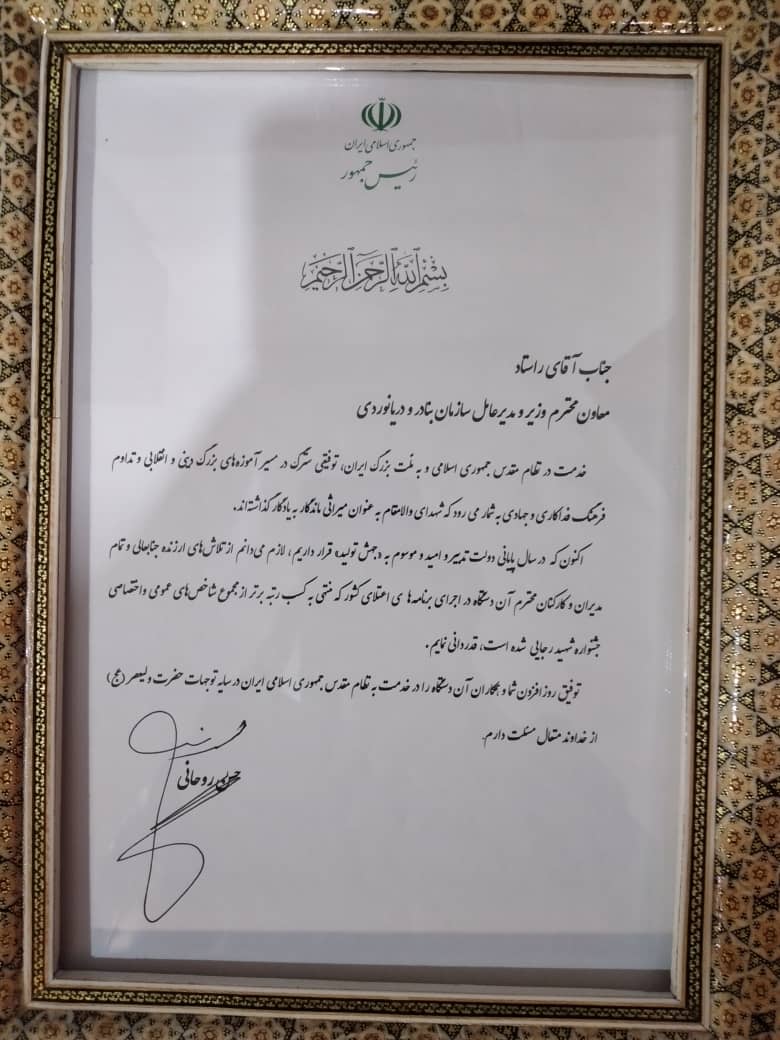 جمهوری اسلامی ایران
رئیس جمهور
بسم الله الرحمن الرحیم
جناب آقای راستاد
معاون محترم وزیر و مدیرعامل سازمان بنادر و دریانوردی
خدمت در نظام مقدس جمهوری اسلامی و به ملت بزرگ ایران، توفیقی سترگ در مسیر آموزه‌های بزرگ دینی و انقلابی و تداوم
فرهنگ فداکاری و جهادی به شمار می رود که شهدای والامقام به عنوان میراثی ماندگار به یادگار گذاشته‌اند.
اکنون که در سال پایانی دولت تدبیر و امید و موسوم به «جهش تولید» قرار داریم، لازم می‌دانم از تلاش‌های ارزنده جنابعالی و تمام
مدیران و کارکنان محترم آن دستگاه در اجرای برنامه ها ی اعتلای کشور که منتهی به کسب رتبه برتر از مجموع شاخص‌های عمومی و اختصاصی
جشنواره شهید رجایی شده است، قدردانی نمایم.
توفیق روز افزون شما و همکاران آن دستگاه را در خدمت به نظام مقدس جمهوری اسلامی ایران در سایه توجهات حضرت ولیعصر (عج)
از خداوند متعال مسئلت دارم.
حسن روحانی